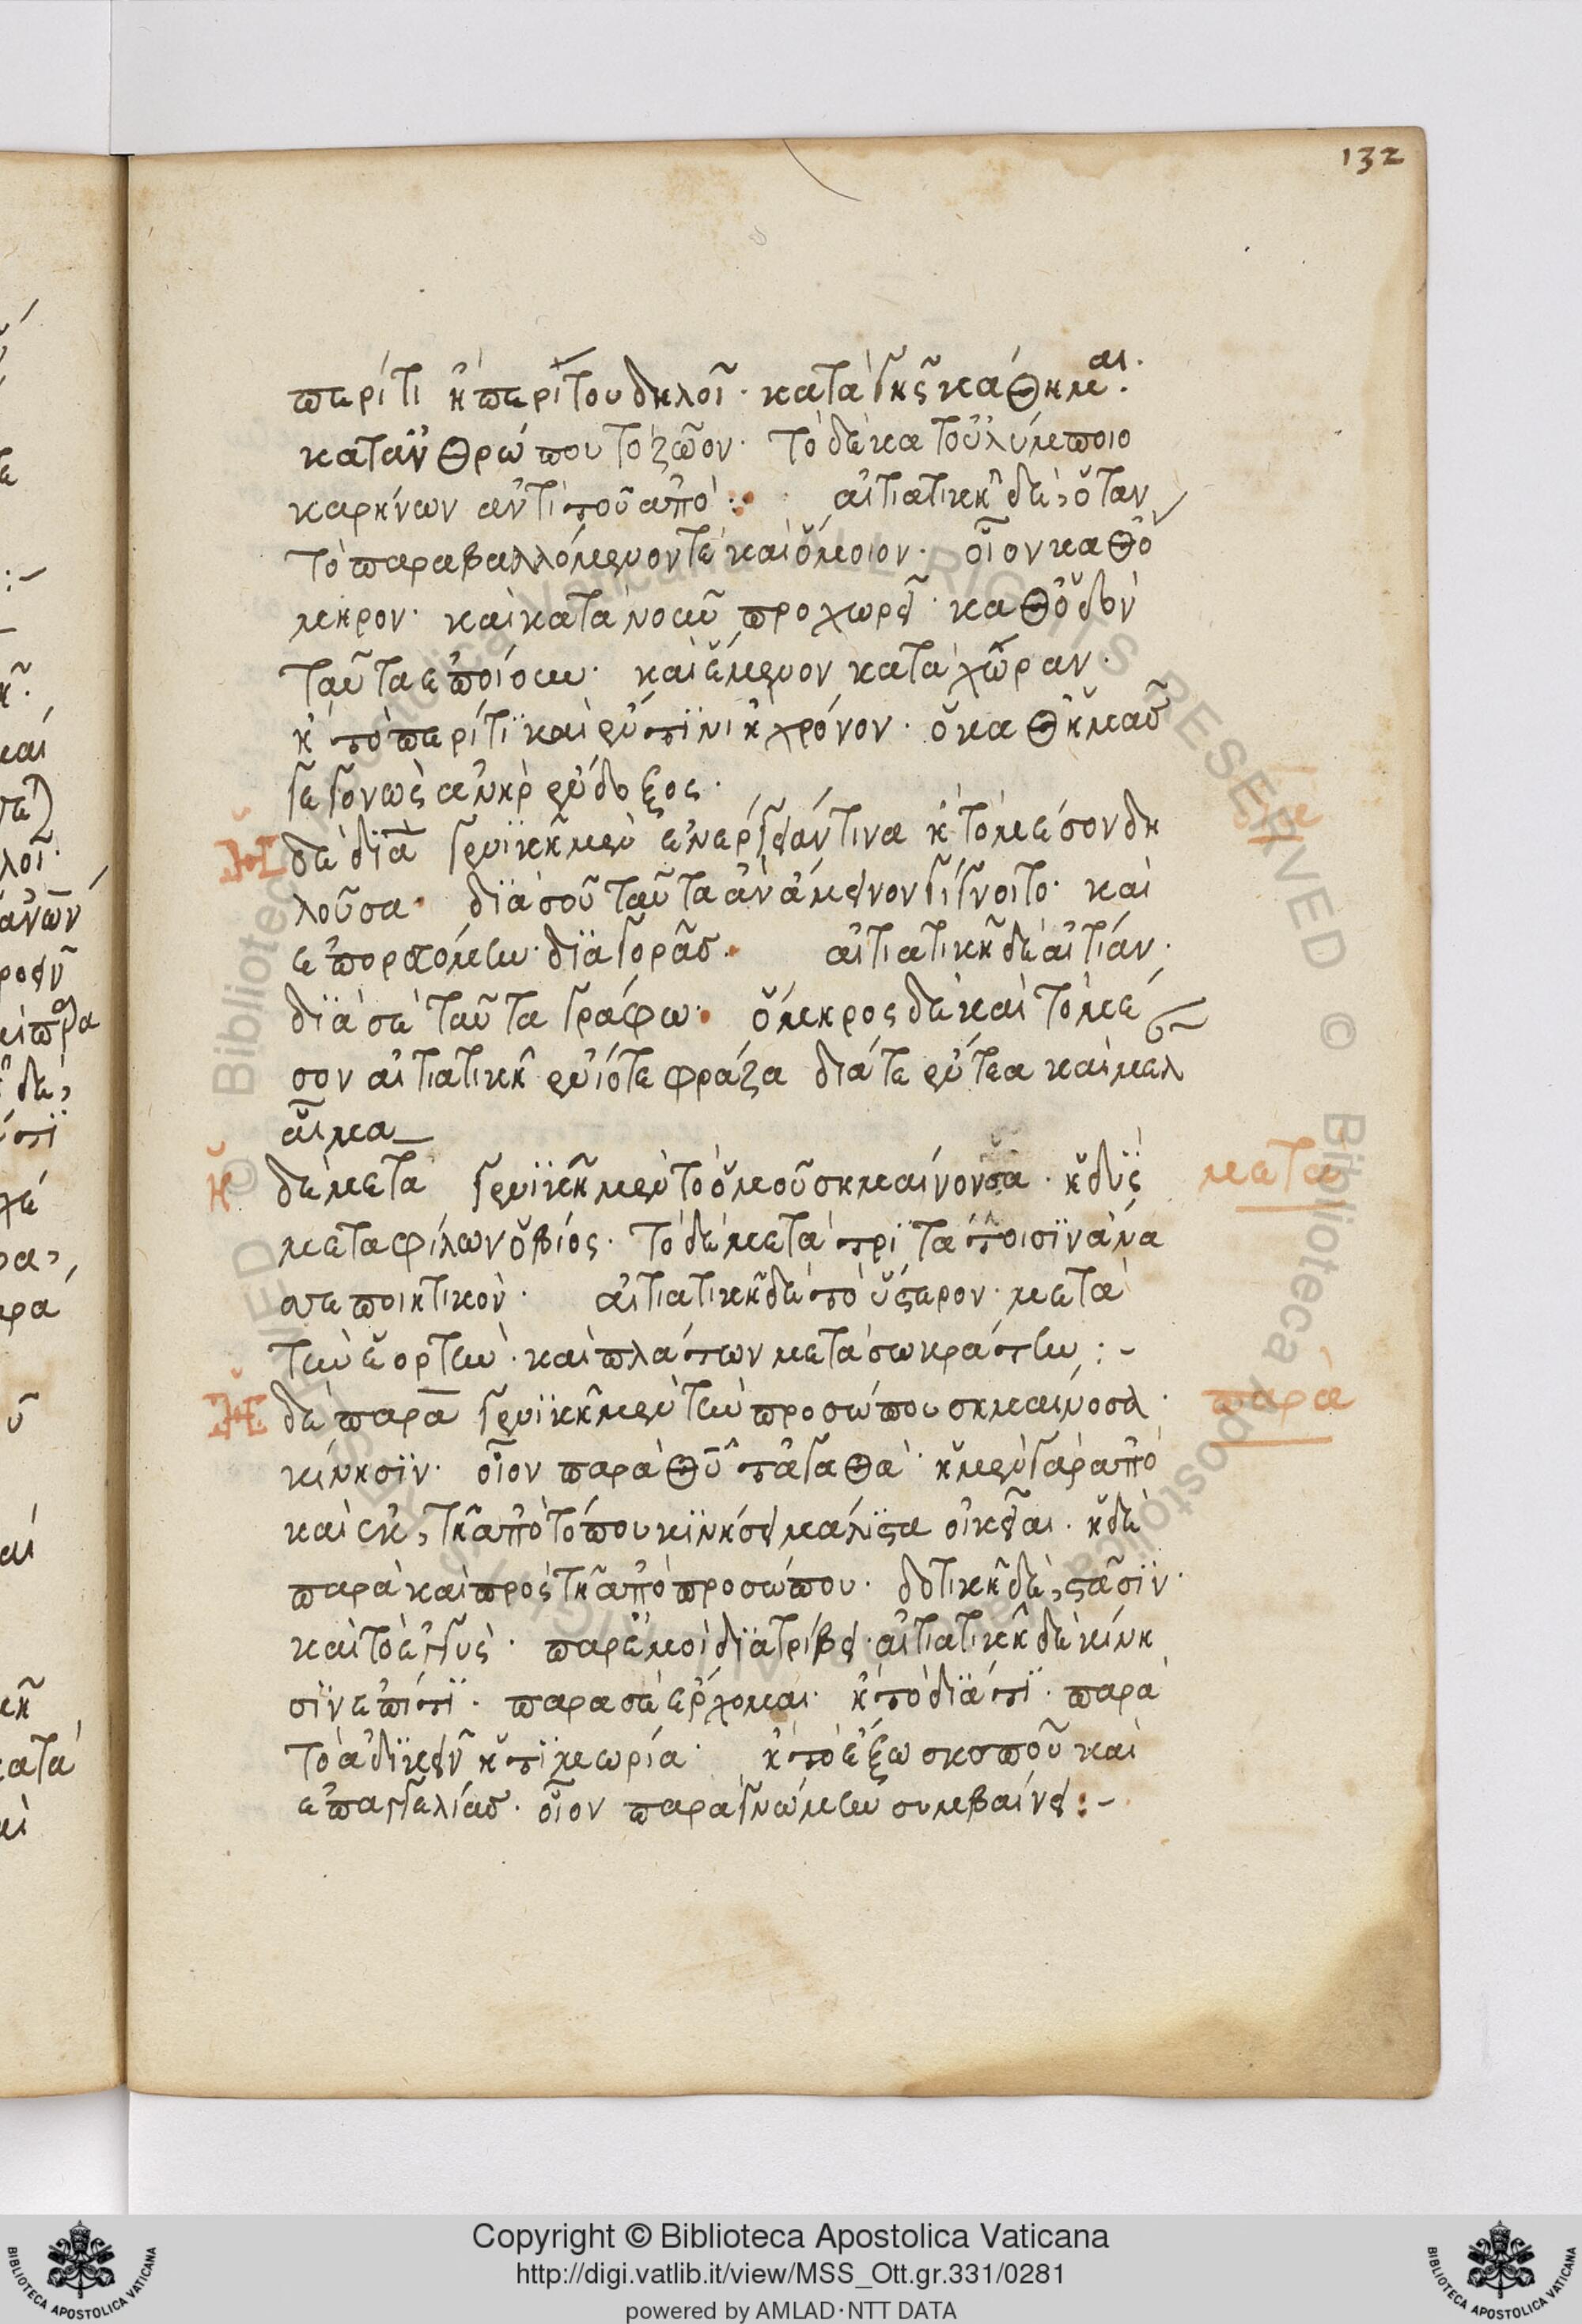 132
περί τι ἢ περί του δηλοῖ· κατὰ γῆς κάθημαι·
κατ' ἀνθρώπου τὸ ζῶον· τὸ δὲ κατ' οὐλύμποιο
καρήνων ἀντὶ τοῦ ἀπό: αἰτιατικῇ δὲ, ὅταν
τὸ παραβαλλόμενόν τε καὶ ὅμοιον· οἷον καθ' ὅ
μηρον· καὶ κατὰ νοῦν προχωρεῖ· καθ' ὁδὸν
ταῦτα ἐποίουν· καὶ ἔμενον κατὰ χώραν·
ἢ τὸ περί τι καὶ ἔν τινι ἢ χρόνον· ὁ καθ' ἡμᾶς
γεγονὼς ἀνὴρ ἔνδοξος·
Ἡ δὲ διὰ γενικῇ μὲν ἐνέργειάν τινα ἢ τὸ μέσον δη
λοῦσα· διὰ σοῦ ταῦτα ἂν ἄμεινον γίγνοιτο· καὶ
ἐπορευόμην διὰ γορᾶς· αἰτιατικῇ δὲ αἰτίαν·
διὰ σὲ ταῦτα γράφω· ὅμηρος δὲ καὶ τὸ μέ
σον αἰτιατικῇ ἐνίοτε φράζει διά τε ἔντεα καὶ μέλαν
αἷμα
Ἡ δὲ μετὰ γενικῇ μὲν τὸ ὁμοῦ σημαίνουσα· ἡδὺς
μετὰ φίλων ὁ βίος· τὸ δὲ μετὰ τριτάτοισιν ἄνα
σσε ποιητικόν· αἰτιατικῇ δὲ τὸ ὕστερον· μετὰ
τὴν ἑορτήν· καὶ πλάτων μετὰ σωκράτην:-
Ἡ δὲ παρὰ γενικῇ μὲν τὴν προσώπου σημαίνουσα·
κίνησιν· οἷον παρὰ θῦ τἀγαθά· ἡ μὲν γὰρ ἀπὸ
καὶ ἐκ, τῇ ἀπὸ τόπου κινήσει μάλιστα οἰκεῖαι· ἡ δὲ
παρὰ καὶ πρὸς τῇ ἀπὸ προσώπου· δοτικῇ δὲ, στάσιν·
καὶ τὸ ἐγγύς· παρ' ἐμοὶ διατρίβει· αἰτιατικῇ δὲ κίνη
σιν ἐπί τι· παρὰ σὲ ἔρχομαι· ἢ τὸ διά τι· παρὰ
τὸ ἀδικεῖν ἡ τιμωρία· ἢ τὸ ἔξω σκοποῦ καὶ
ἐπαγγελίας· οἷον παρὰ γνώμην συμβαίνει:-
διὰ
μετὰ
παρὰ
Copyright © Biblioteca Apostolica Vaticana
http://digi.vatlib.it/view/MSS_Ott.gr.331/0281
powered by AMLAD·NTT DATA
BIBLIOTECA APOSTOLICA VATICANA
BIBLIOTECA APOSTOLICA VATICANA